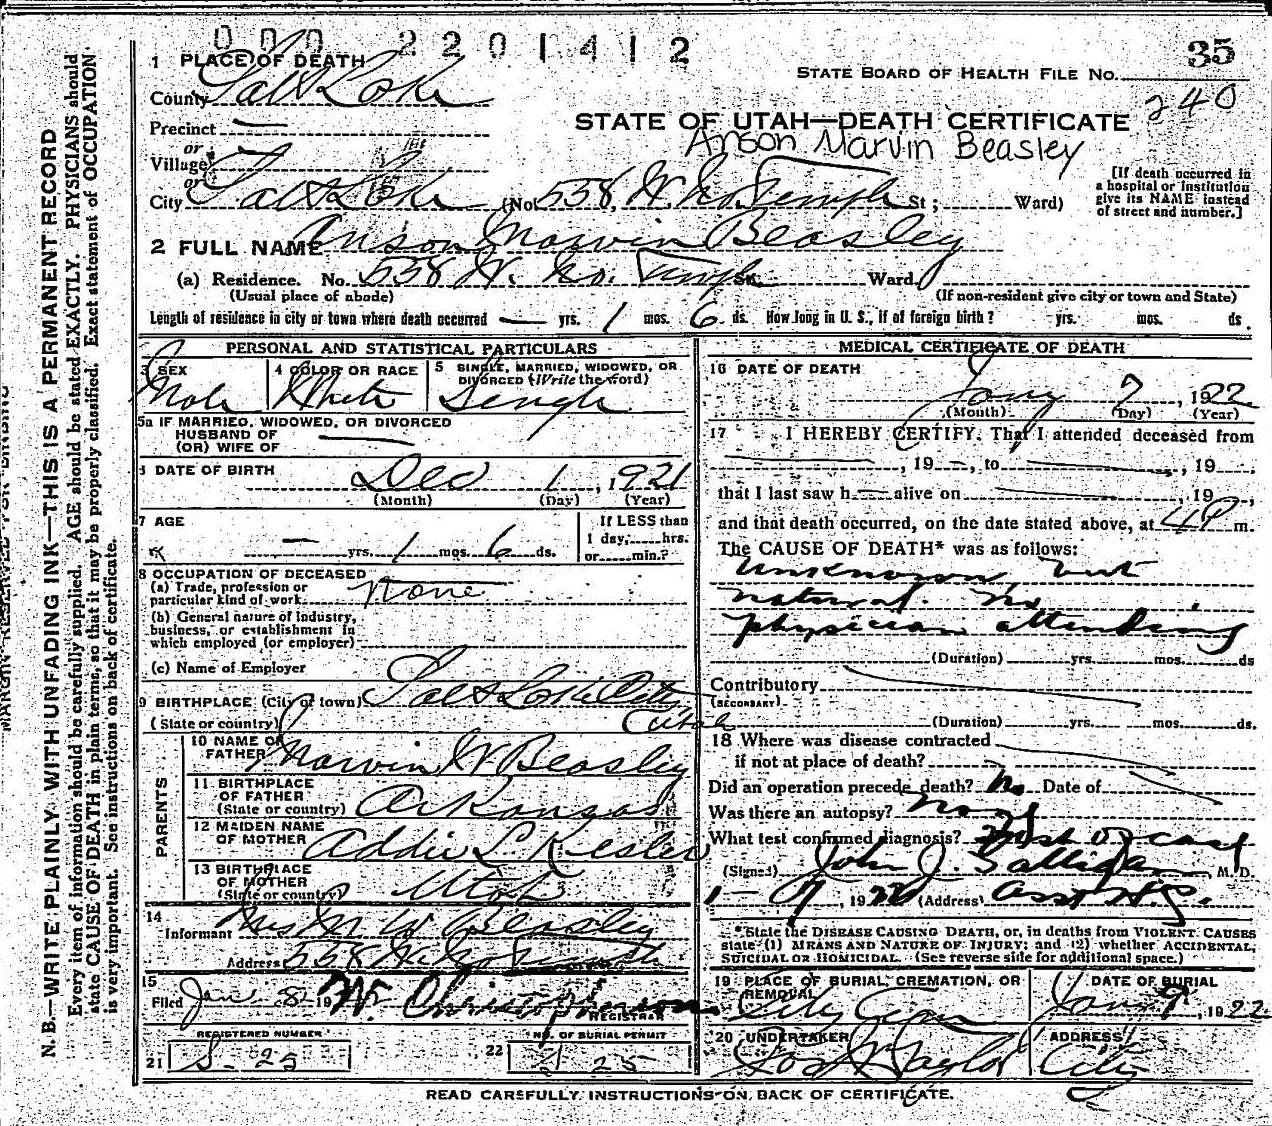 0 0 0 2 2 0 1 4 1 2
35
1 PLACE OF DEATH
STATE BOARD OF HEALTH FILE NO.
240
County Salt Lake
STATE OF UTAH—DEATH CERTIFICATE
Precinct —
Anson Marvin Beasley
or
Village
or
City Salt Lake (No. 538 W. No. Temple St; Ward)
[If death occurred in
a hospital or institution
give its NAME instead
of street and number.]
2 FULL NAME Anson Marvin Beasley
(a) Residence. No. 538 W. No. Temple St. Ward
(Usual place of abode) (If non-resident give city or town and State)
Length of residence in city or town where death occurred — yrs. 1 mos. 6 ds. How long in U. S., if of foreign birth? yrs. mos. ds.
PERSONAL AND STATISTICAL PARTICULARS
3 SEX
Male
4 COLOR OR RACE
White
5 SINGLE, MARRIED, WIDOWED, OR
DIVORCED (Write the word)
Single
5a IF MARRIED, WIDOWED, OR DIVORCED
HUSBAND OF
(OR) WIFE OF —
DATE OF BIRTH Dec 1, 1921
(Month) (Day) (Year)
7 AGE
— yrs. 1 mos. 6 ds.
If LESS than
1 day, hrs.
or min.?
8 OCCUPATION OF DECEASED
(a) Trade, profession or
particular kind of work None
(b) General nature of industry,
business, or establishment in
which employed (or employer)
(c) Name of Employer
9 BIRTHPLACE (City or town) Salt Lake City
(State or country) Utah
PARENTS
10 NAME OF
FATHER Marvin W Beasley
11 BIRTHPLACE
OF FATHER
(State or country) Arkansas
12 MAIDEN NAME
OF MOTHER Addie L Kesler
13 BIRTHPLACE
OF MOTHER
(State or country) Utah
14
Informant Mrs M W Beasley
Address 538 W. No Temple
15
Filed Jan 8 19
REGISTRAR
REGISTERED NUMBER
21 S. 25
NO. OF BURIAL PERMIT
22 25
MEDICAL CERTIFICATE OF DEATH
16 DATE OF DEATH
Jany 7, 1922
(Month) (Day) (Year)
17 I HEREBY CERTIFY, That I attended deceased from
, 19 —, to , 19 .
that I last saw h— alive on , 19 ,
and that death occurred, on the date stated above, at 4 P m.
The CAUSE OF DEATH* was as follows:
Unknown, but
natural. No
physician attending
(Duration) yrs. mos. ds
Contributory
(SECONDARY)
(Duration) yrs. mos. ds.
18 Where was disease contracted
if not at place of death?
Did an operation precede death? No Date of
Was there an autopsy? No
What test confirmed diagnosis? of case
(Signed) John J. Galligan, M. D.
1 — 7, 1922 (Address) Asst H.
*State the DISEASE CAUSING DEATH, or, in deaths from VIOLENT CAUSES
state (1) MEANS AND NATURE OF INJURY; and (2) whether ACCIDENTAL,
SUICIDAL OR HOMICIDAL. (See reverse side for additional space.)
19 PLACE OF BURIAL, CREMATION, OR
REMOVAL
City Cem
DATE OF BURIAL
Jany 9, 1922
20 UNDERTAKER
Jos Wm Taylor
ADDRESS
City
READ CAREFULLY INSTRUCTIONS ON BACK OF CERTIFICATE.
MARGIN RESERVED FOR BINDING
N. B.—WRITE PLAINLY, WITH UNFADING INK—THIS IS A PERMANENT RECORD
Every item of information should be carefully supplied. AGE should be stated EXACTLY. PHYSICIANS should
state CAUSE OF DEATH in plain terms, so that it may be properly classified. Exact statement of OCCUPATION
is very important. See instructions on back of certificate.